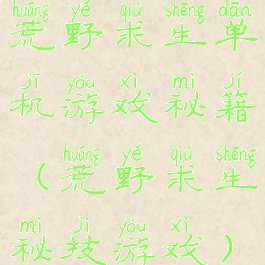 huāng yě qiú shēng dān
荒野求生单
jī yóu xì mì jí
机游戏秘籍
huāng yě qiú shēng
（荒野求生
mì jì yóu xì
秘技游戏）